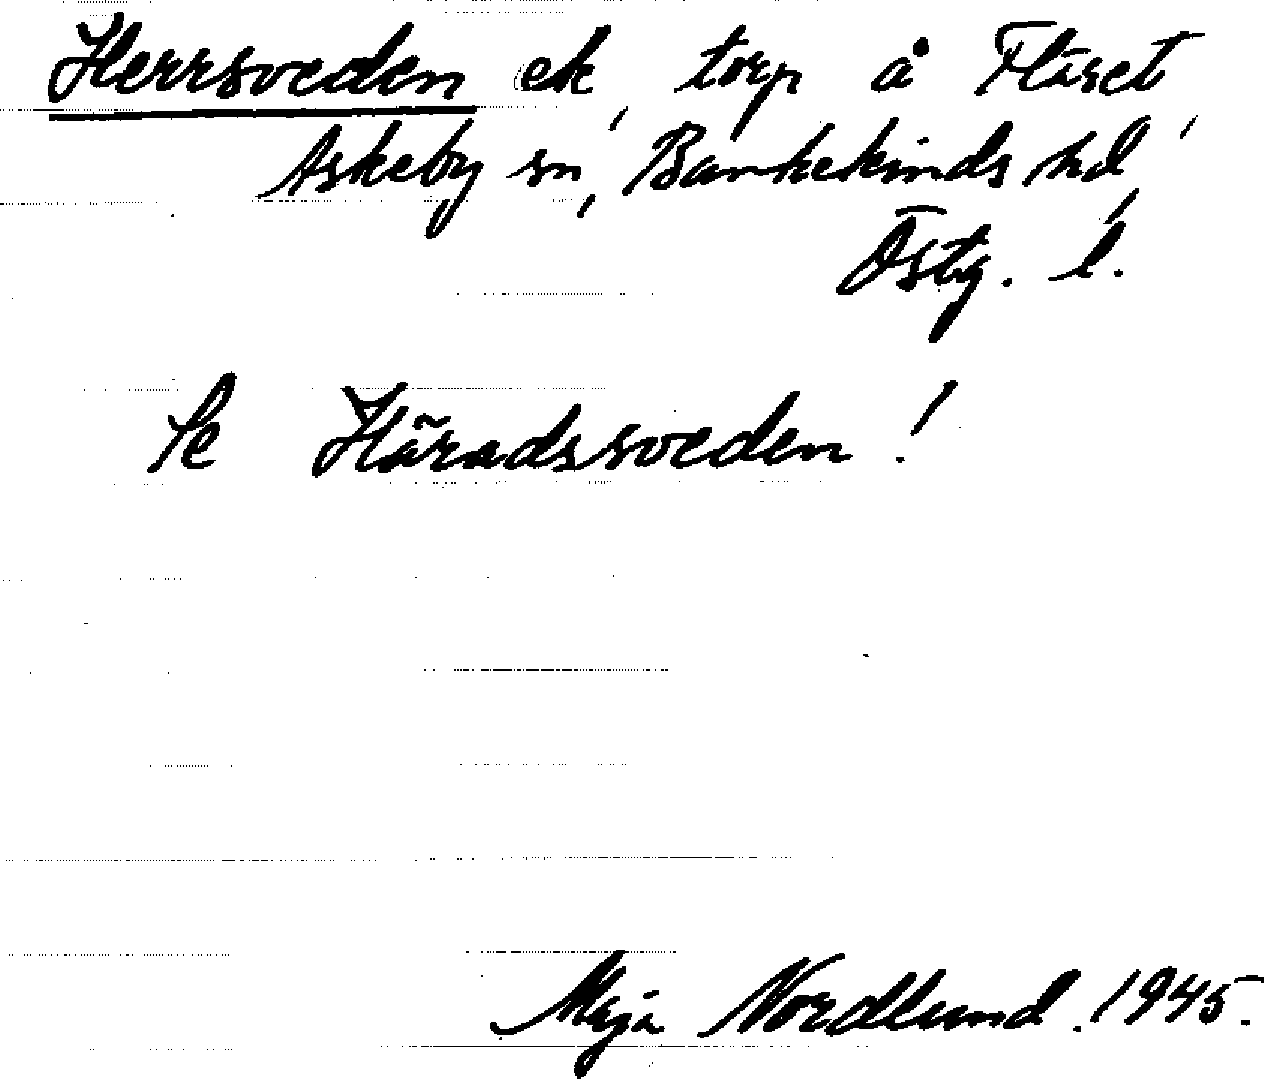 Herrsveden ek, torp å Fläret,
Askeby sn, Bankekinds hd,
Östg. l.
Se Häradssveden!
Meja Nordlund. 1945.